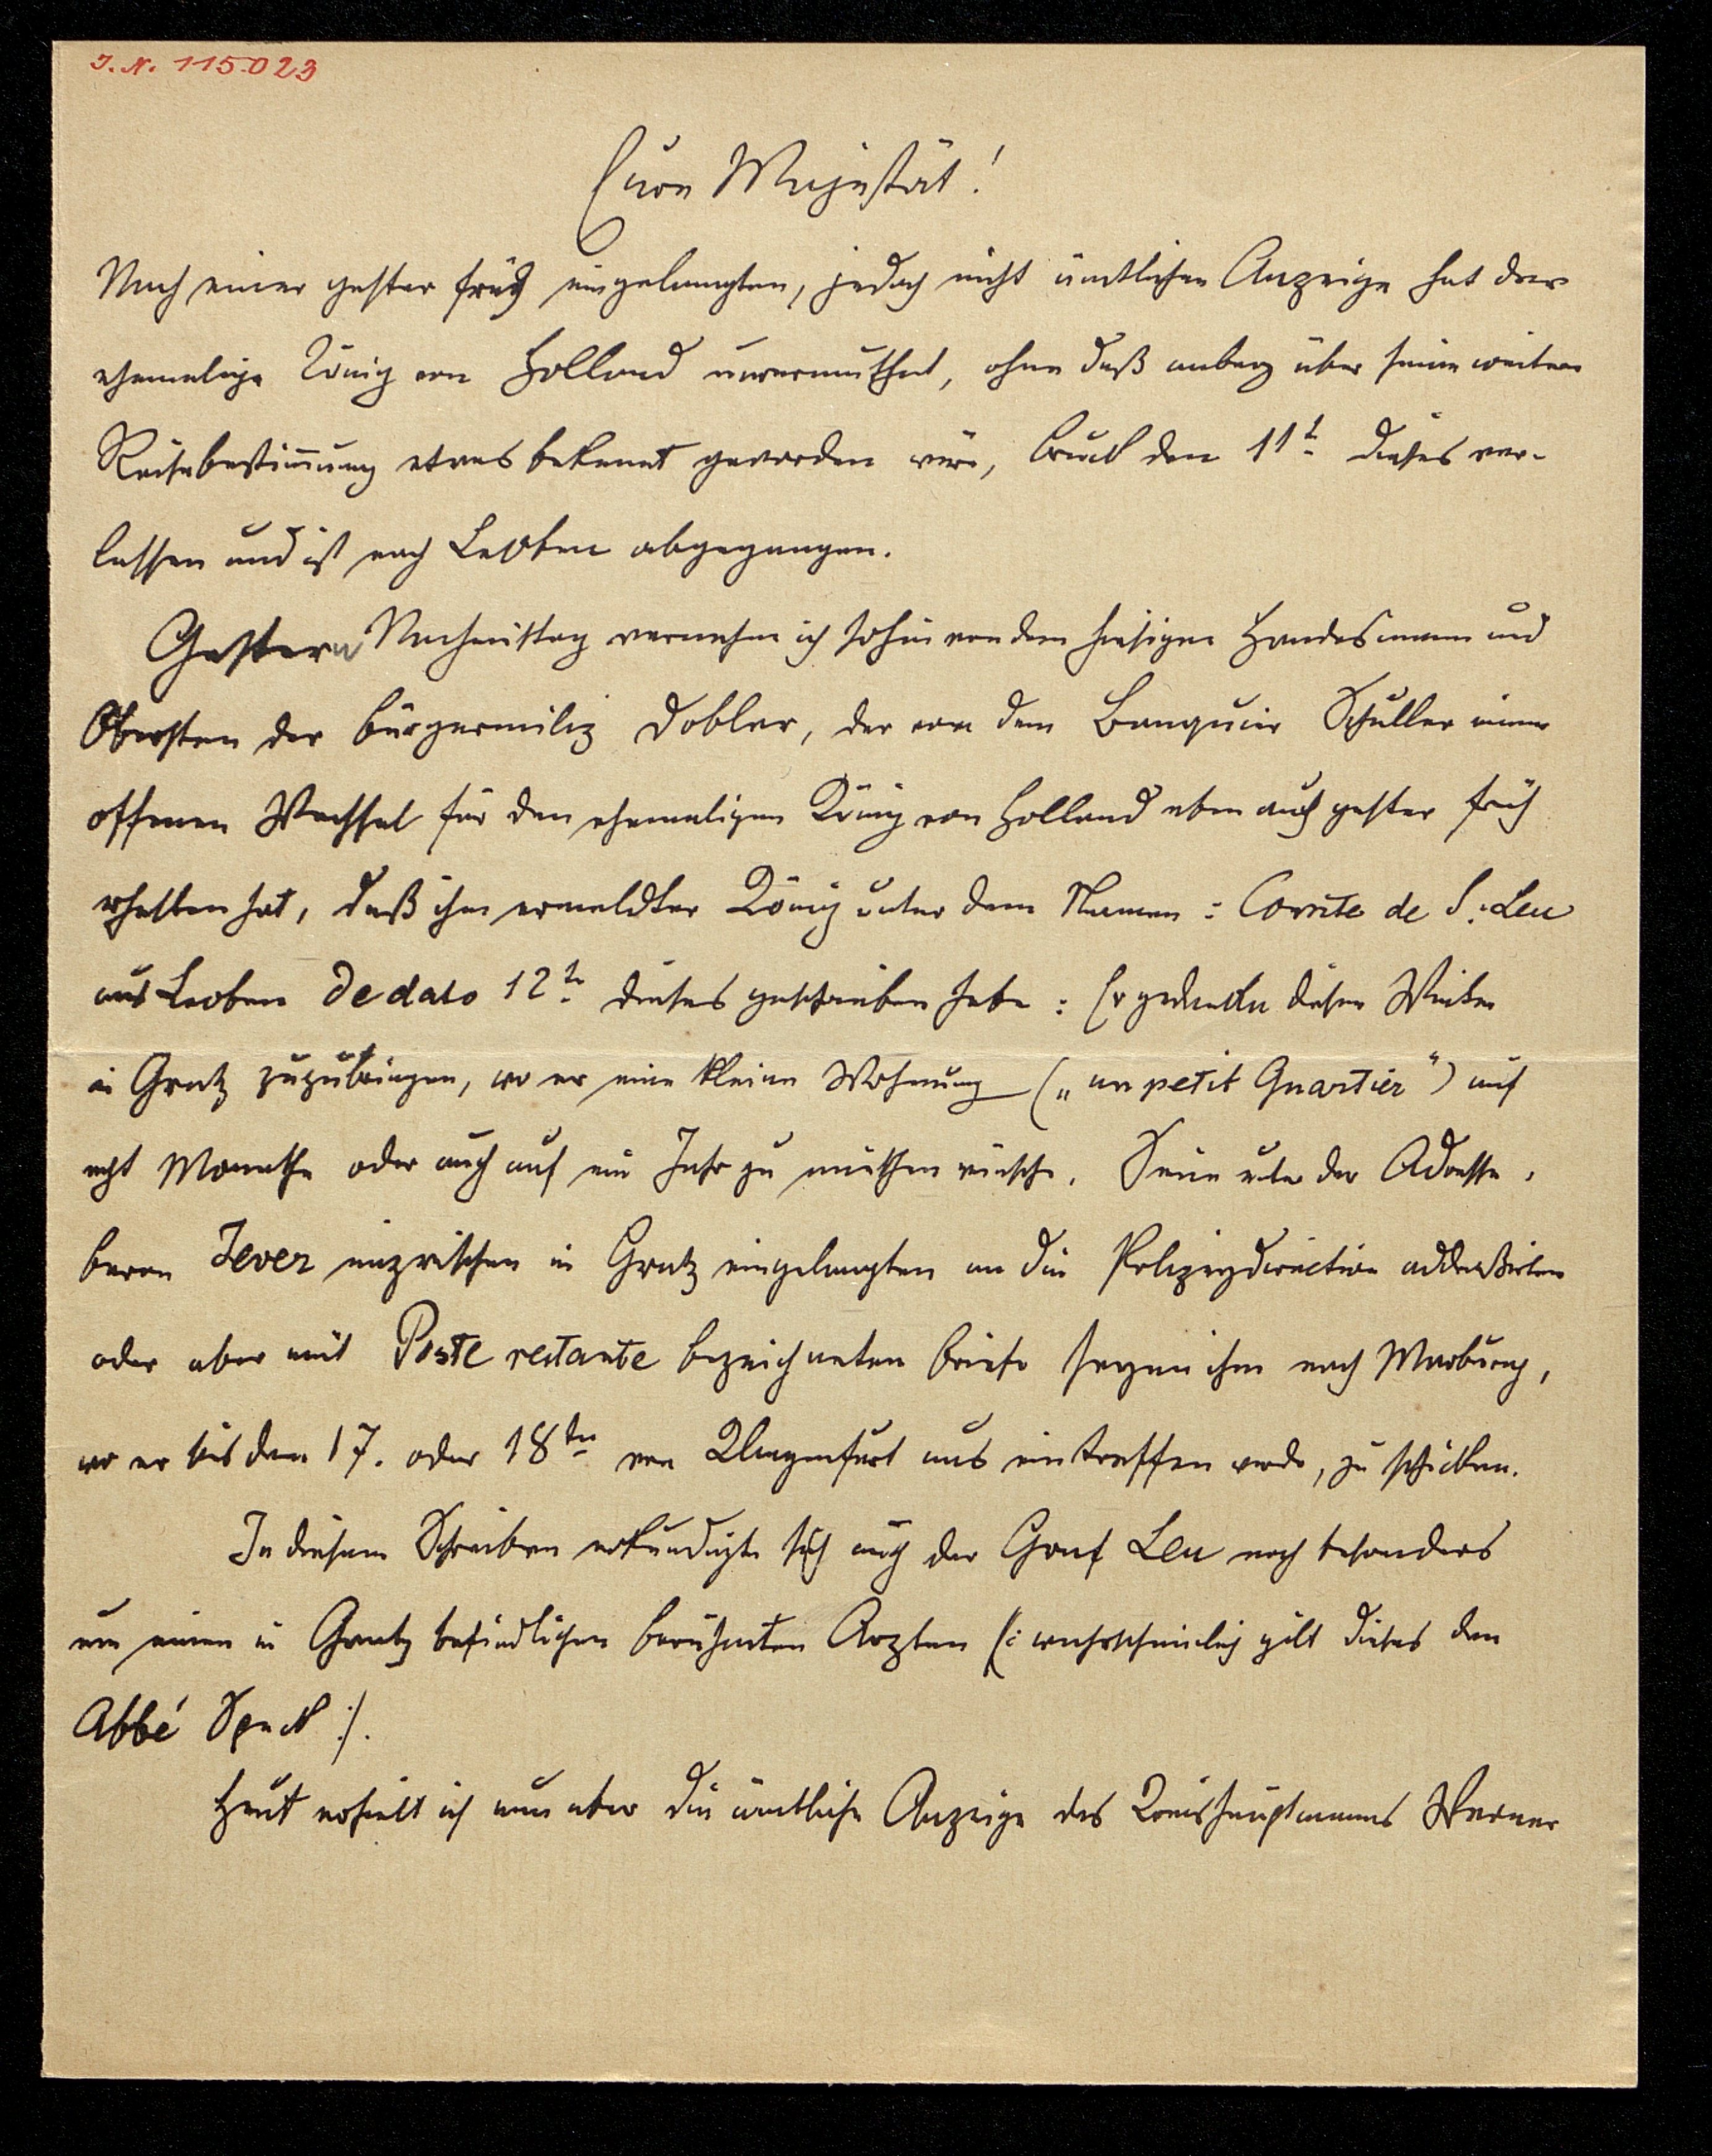 I. N. 115.023
Eure Majestät!
Nach einer gester früh eingelangten, jedoch nicht ämtlichen Anzeige hat der
ehemalige König von Holland unvermuthet, ohne daß anbey über seine weitere
Reisebestimung etwas bekannt geworden wäre, Bruck den 11t dieses ver-
lassen und ist nach Leoben abgegangen.
Gestern Nachmittag vernahm ich sohin von dem hiesigen Handesmann und
Obersten der Bürgermiliz Dobler, der von dem Banquier Schuller einen
offenen Wechsel für den ehemaligen König von Holland eben auch gester früh
erhalten hat, daß ihm ermeldter König unter dem Namen: Comte de S. Leu
aus Leoben de dato 12tn dieses geschrieben habe: Er gedenke diesen Winter
in Gratz zuzubringen, wo er eine kleine Wohnung („un petit Quartier") auf
acht Monathe oder auch auf ein Jahr zu miethen wünsche. Seine unter der Adresse,
Baron Jever inzwischen in Gratz eingelangten an die Polizeydirection addreßirten
oder aber mit Poste restante bezeichneten Briefe seyen ihm nach Marburg,
wo er bis den 17. oder 18ten von Klagenfurt aus eintreffen werde, zu schicken.
In diesem Schreiben erkundigte sich auch der Graf Leu noch besonders
um einen in Gratz befindlichen berühmten Arzten (: wahrscheinlich gilt dieses den
Abbé Speck :).
Heut erhielt ich nun aber die ämtliche Anzeige des Kreishauptmanns Werner